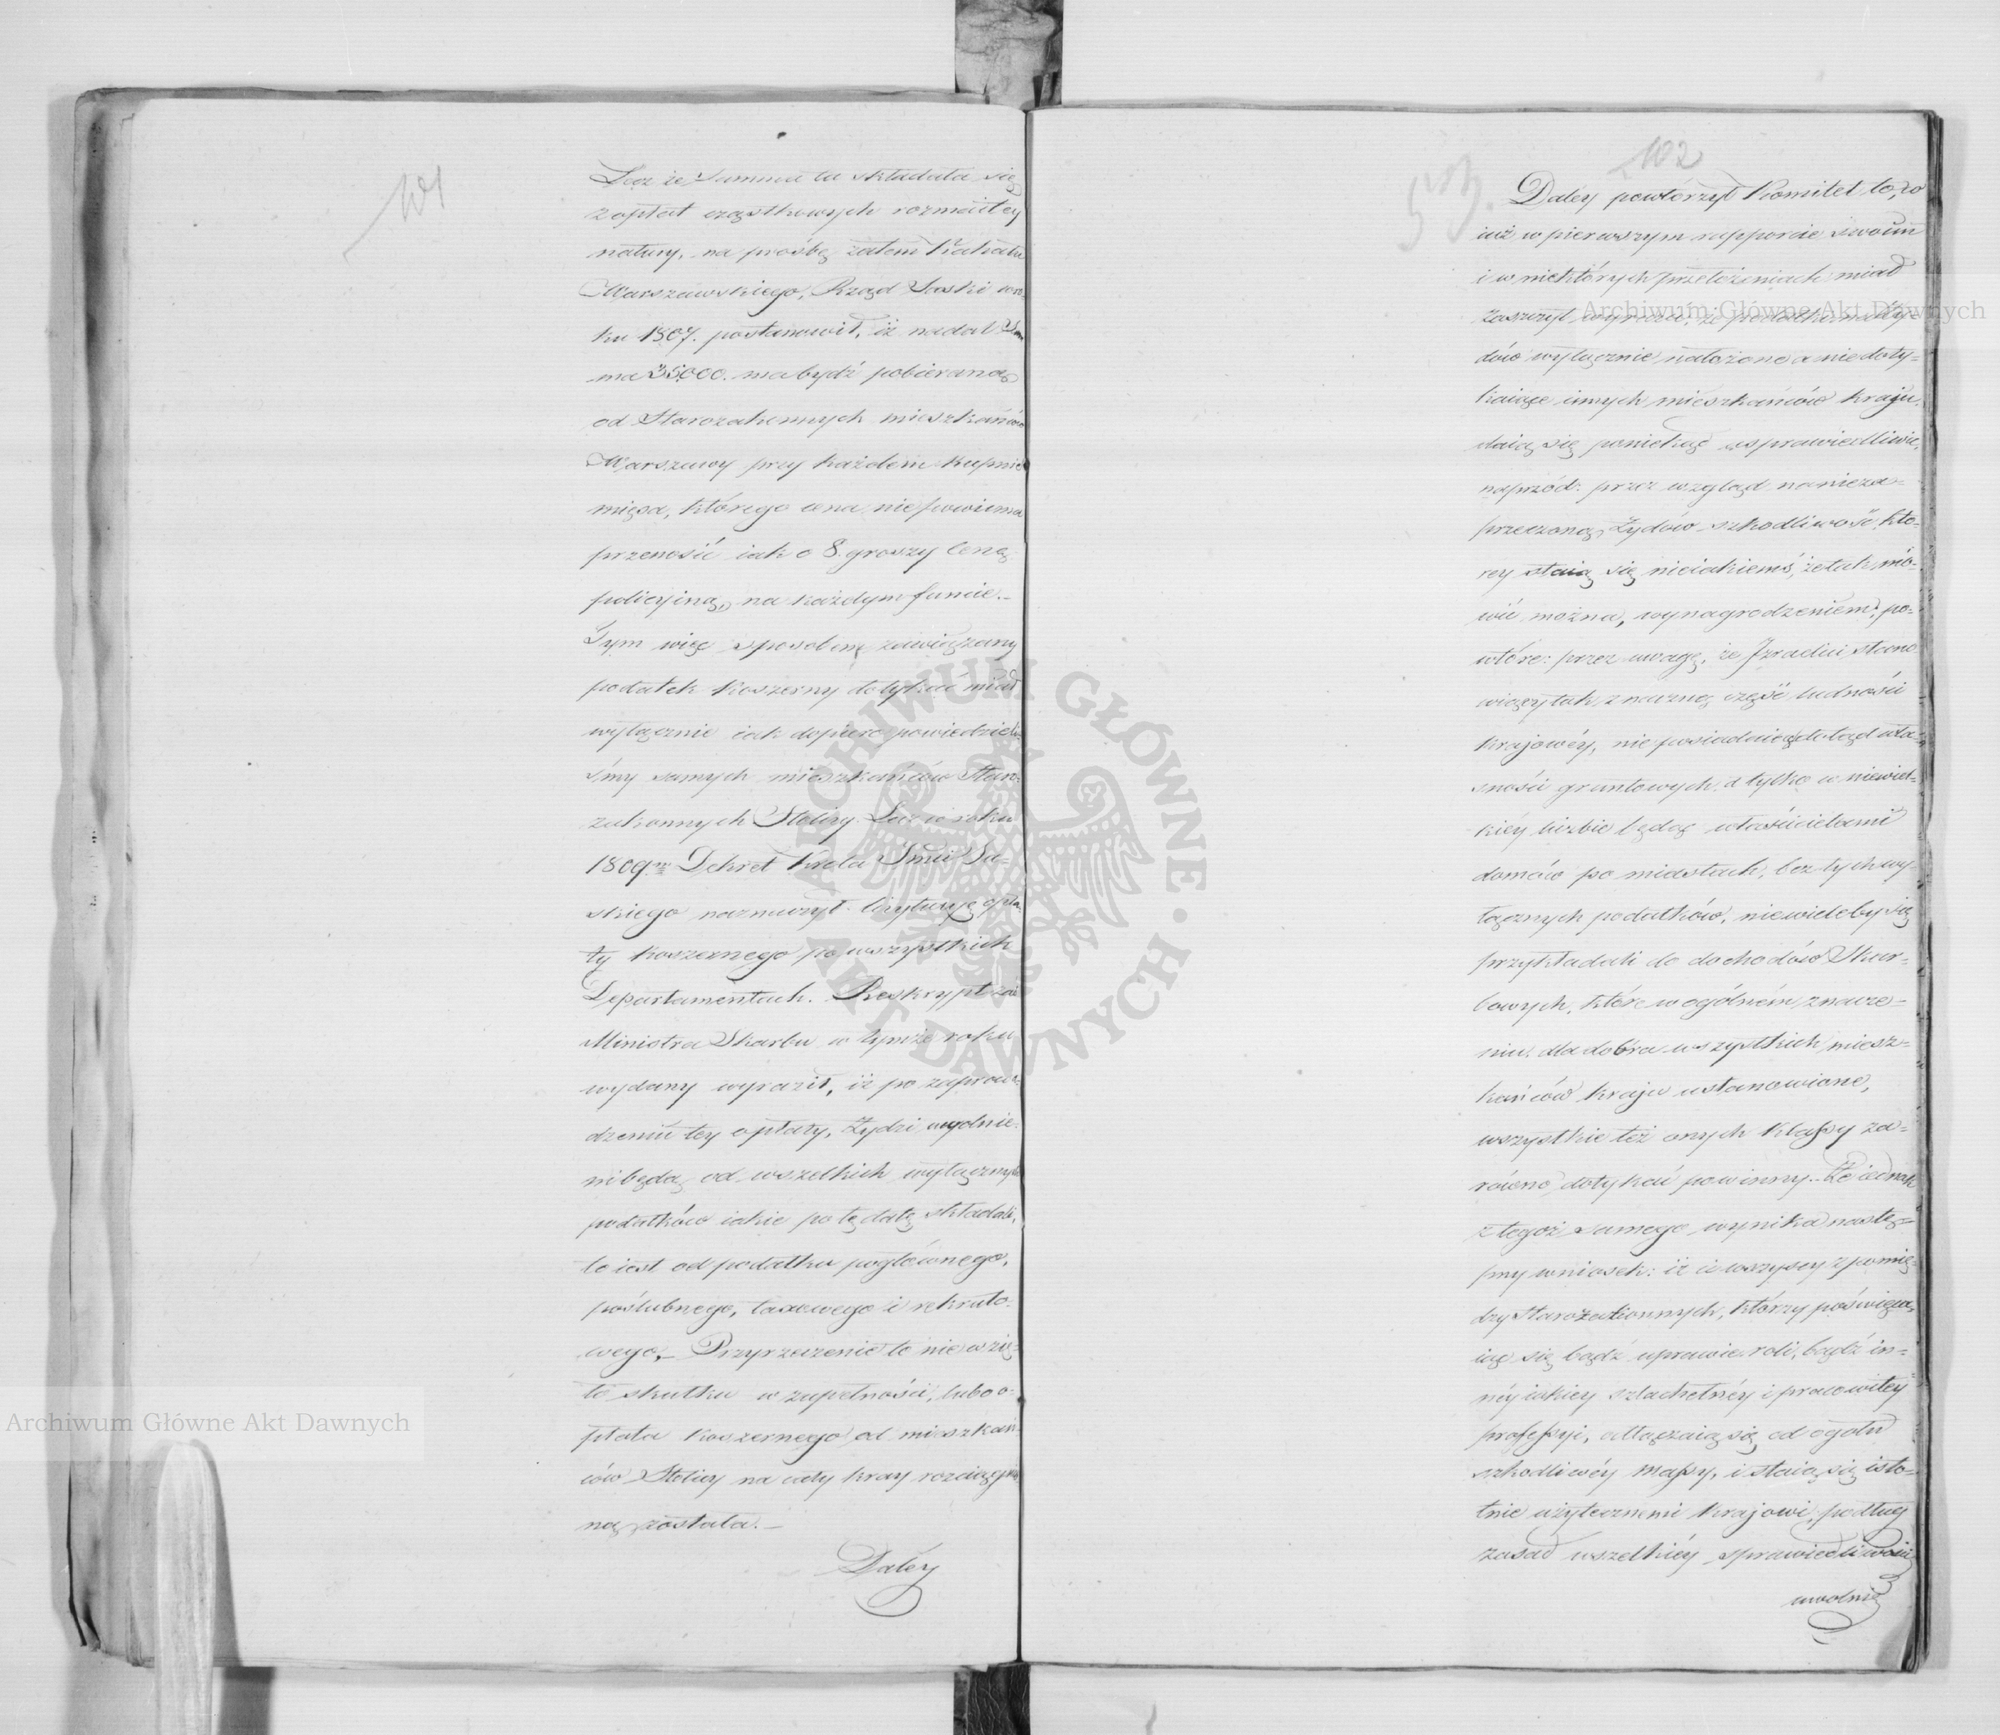 101
Lecz że Summa ta składała się
z opłat cząstkowych rozmaitey
natury, na prośbę zatem Kahału
Warszawskiego, Rząd Pruski w ro-
ku 1807. postanowił, iż nadal Sum
ma 35000. ma bydź pobierana
od Starozakonnych mieszkańców
Warszawy przy każdem kupnie
mięsa, którego cena nie powinna
przenosić iak o 8. groszy Cenę
policyiną, na każdym funcie.-
Tym więc sposobem zawiązany
podatek koszerny dotykać miał
wyłącznie iak dopiero powiedzieli-
śmy samych mieszkańców Staro-
zakonnych Stolicy. Lecz w roku
1809m Dekret Króla Jmci Sa-
skiego naznaczył licytacyę opła-
ty koszernego po wszystkich
Departamentach. Reskrypt zaś
Ministra Skarbu w tymże roku
wydany wyraził, iż po zaprowa-
dzeniu tey opłaty, Żydzi uwolnie-
ni będą od wszelkich wyłącznych
podatków iakie po tę datę składali,
to iest od podatku pogłównego,
poślubnego, taxowego i rekruto-
wego.- Przyrzeczenie to nie wzię-
ło skutku w zupełności, lubo o-
płata koszernego od mieszkań-
ców Stolicy na cały kray rozciągnio
ną została.-
Daléy
102
53.
Daléy powtórzył Komitet to, co
iuż w pierwszym rapporcie swoim
i w niektórych przełożeniach miał
zaszczyt wyrazić; że podatki na Ży-
dów wyłącznie nałożone a nie doty-
kaiące innych mieszkańców kraju,
daią się poniekąd usprawiedliwić,
naprzód: przez wzgląd na nieza-
przeczoną Żydów szkodliwość, któ-
rey staią się nieiakiemś, że tak mó-
wić można, wynagrodzeniem; po-
wtóre: przez uwagę, że Izraelici stano
wiący tak znaczną część ludności
krajowéy, nie posiadaiąc dotąd wła-
sności gruntowych, a tylko w niewiel-
kiéy liczbie będąc właścicielami
domów po miastach, bez tych wy-
łącznych podatków, niewieleby się
przykładali do dochodów Skar-
bowych, które w ogólném znacze-
niu dla dobra wszystkich miesz-
kańców kraju ustanowione,
wszystkie też onych klassy za-
równo dotykać powinny.- Że iednak
z tegoż samego wynika nastę-
pny wniosek: iż ci wszyscy z pomię-
dzy Starozakonnych, którzy poświęca-
iąc się bądź uprawie roli, bądź in-
néy iakiey szlachetnéy i pracowitey
professyi, odłączaią się od ogółu
szkodliwéy massy, i staią się isto-
tnie użytecznemi krajowi, podług
zasad wszelkiéy sprawiedliwości
uwolnie
Archiwum Główne Akt Dawnych
Archiwum Główne Akt Dawnych
ARCHIWUM GŁÓWNE AKT DAWNYCH